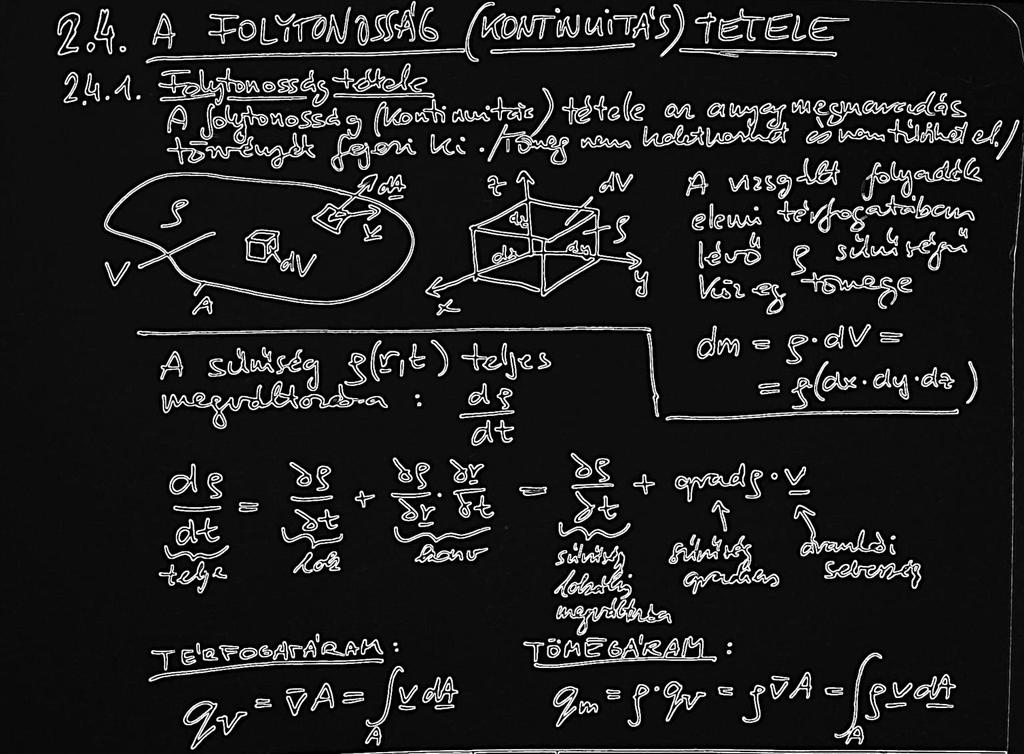 2.4. A FOLYTONOSSÁG (KONTINUITÁS) TÉTELE
2.4.1. Folytonosság tétele
A folytonosság (kontinuitás) tétele az anyagmegmaradás
törvényét fejezi ki. /Tömeg nem keletkezhet és nem tűnhet el./
ρ dA v V dV A
z dV dz ρ dx dy x y
A vizsgált folyadék
elemi térfogatában
lévő ρ sűrűségű
közeg tömege
dm = ρ·dV =
= ρ(dx·dy·dz)
A sűrűség ρ(r,t) teljes
megváltozása : dρ/dt
dρ/dt = ∂ρ/∂t + ∂ρ/∂r · ∂r/∂t = ∂ρ/∂t + grad ρ · v
telje lok konv sűrűség lokális megváltozása sűrűség gradiens áramlási sebesség
TÉRFOGATÁRAM: TÖMEGÁRAM:
q_v = v̄A = ∫_A v dA q_m = ρ·q_v = ρv̄A = ∫_A ρ v dA